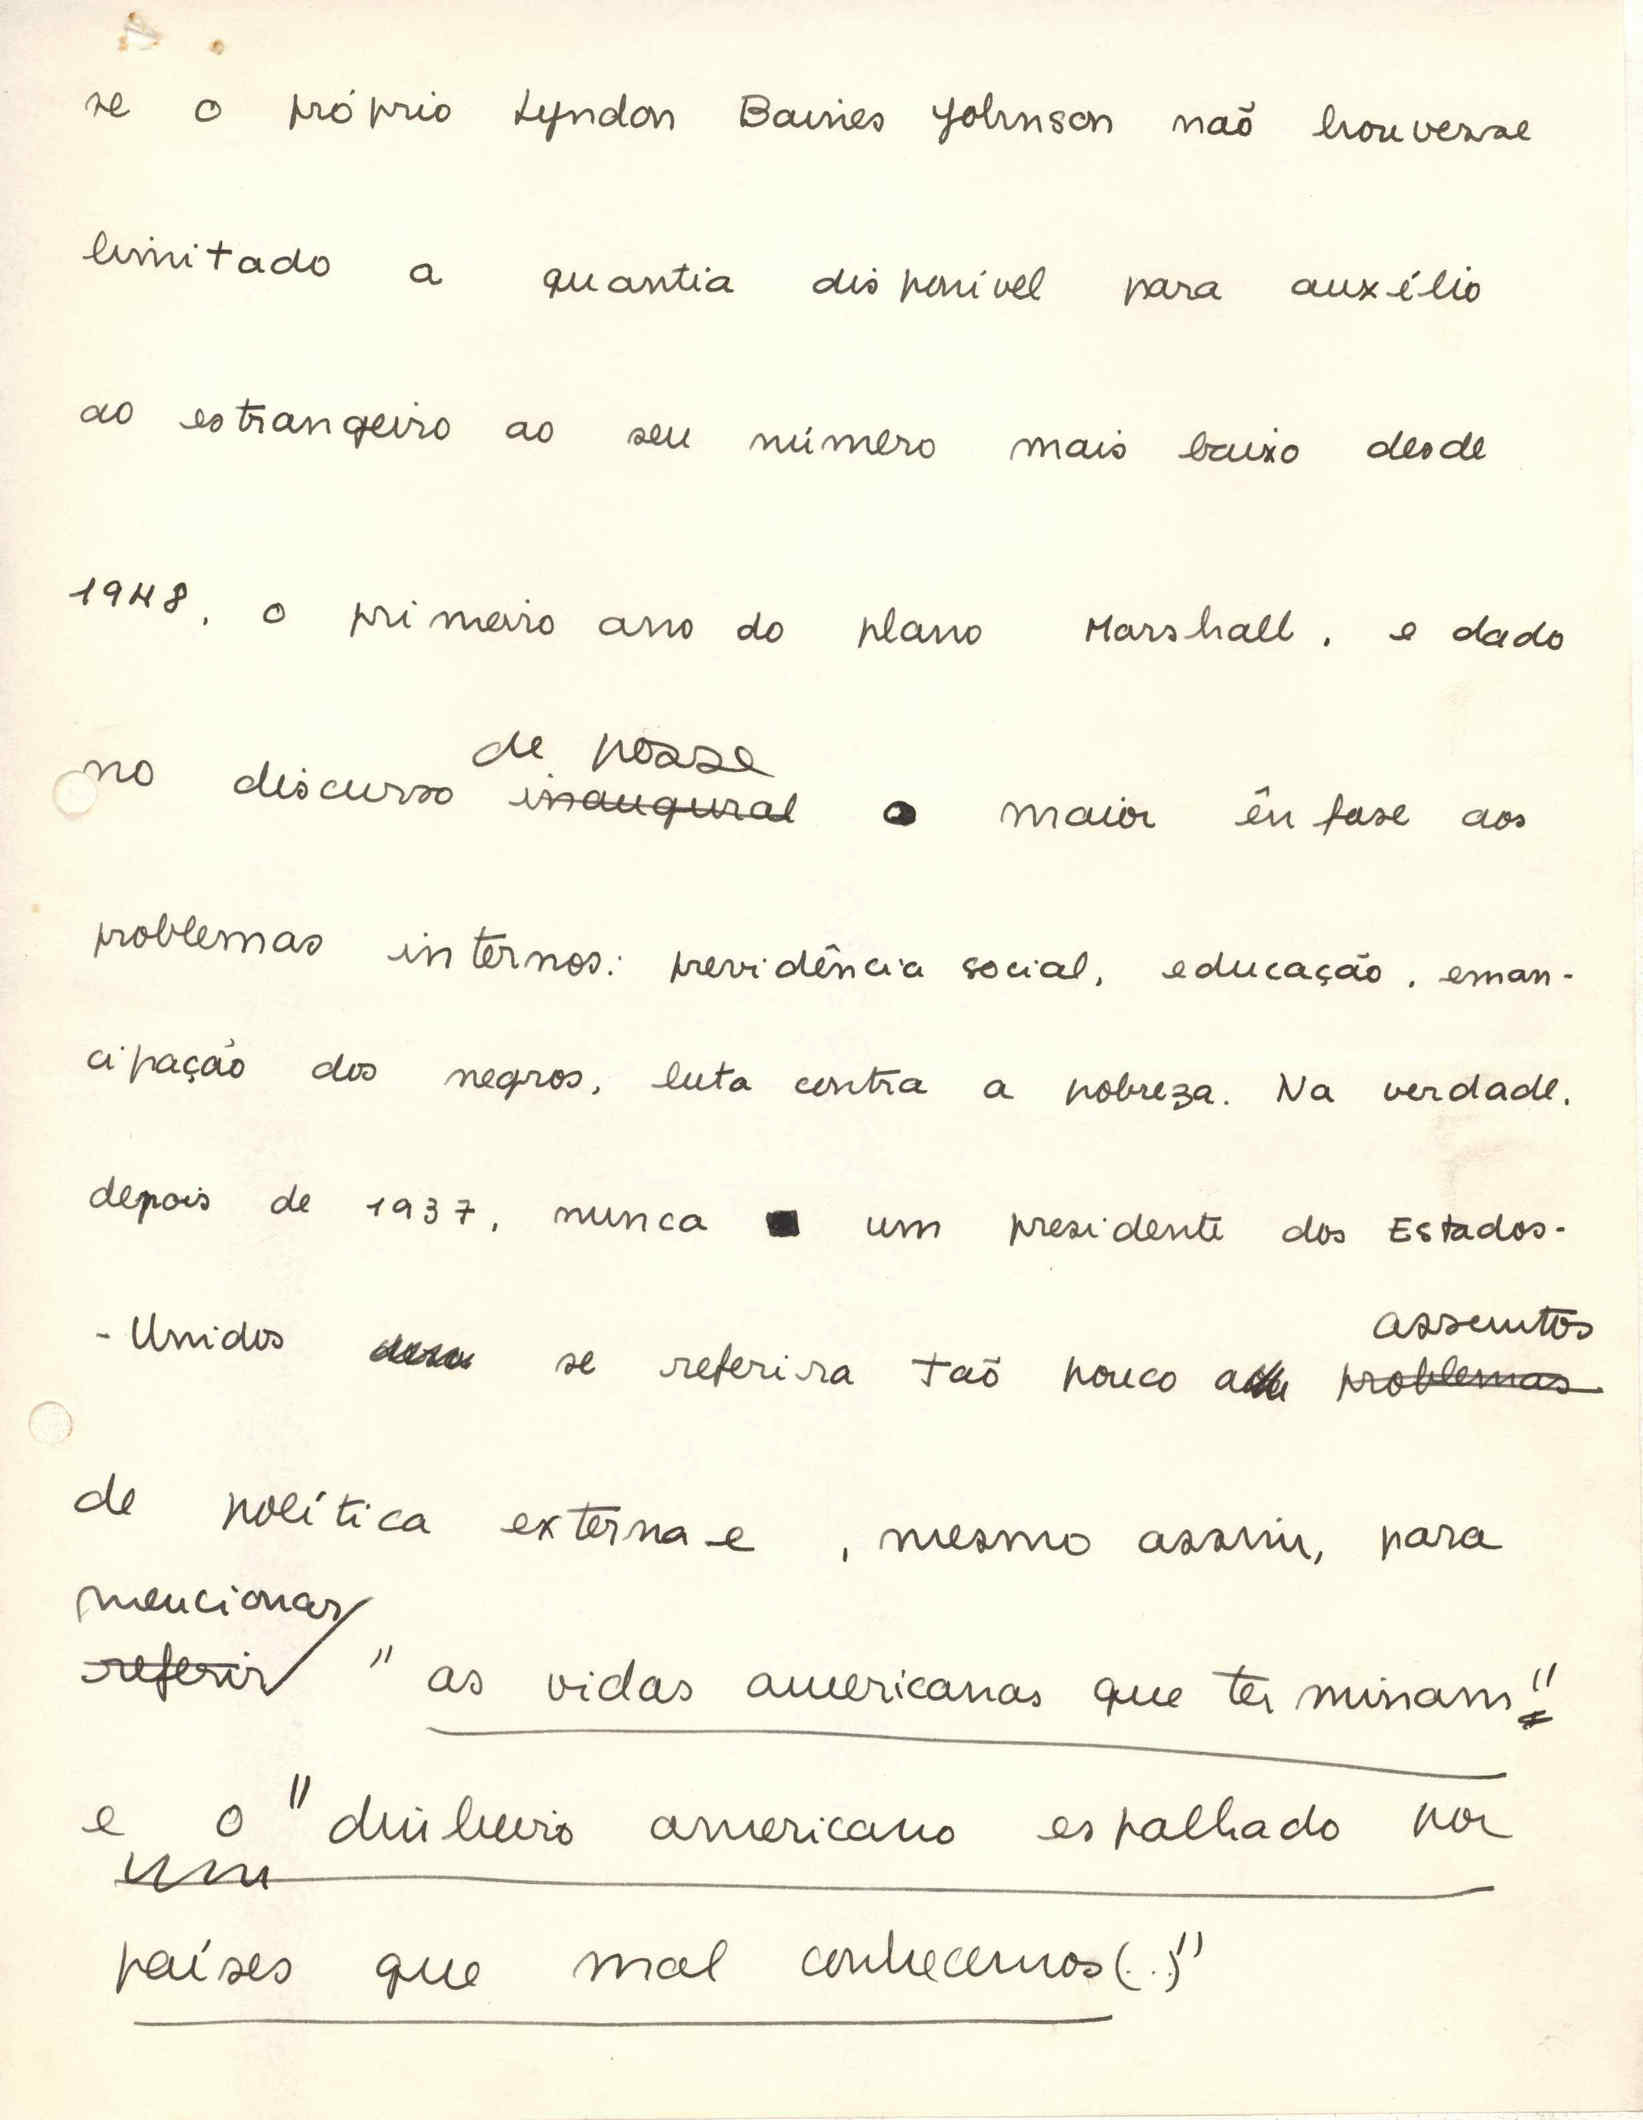 se o próprio Lyndon Baines Johnson não houvesse
limitado a quantia disponível para auxílio
ao estrangeiro ao seu número mais baixo desde
1948, o primeiro ano do plano Marshall, e dado
de posse
no discurso inaugural maior ênfase aos
problemas internos: previdência social, educação, eman-
cipação dos negros, luta contra a pobreza. Na verdade,
depois de 1937, nunca um presidente dos Estados-
assuntos
-Unidos se referira tão pouco a problemas
de política externa e, mesmo assim, para
mencionar
referir "as vidas americanas que terminam"
e o "dinheiro americano espalhado por
em
países que mal conhecemos(..)"